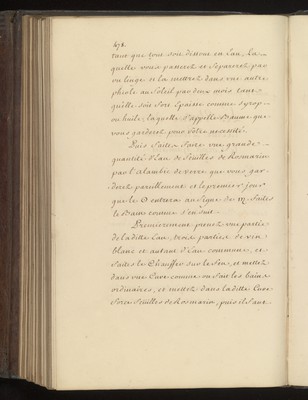 tant que tout soit dissout en l'eau, la-
quelle vous passerez et separerez par
un linge et la mettrez dans une autre
phiole au Soleil par deux mois tant
qu'elle soit fort Epaisse comme syrop
ou huile, laquelle s'appelle Baume que
vous garderez pour vôtre necessité.
Puis faites faire une grande
quantité d'Eau de feuilles de Rosmarin
par l'alambic de verre que vous gar-
derez pareillement et le premier jour
que le ☉ entrera au signe de ♏ faites
le Bain comme s'en suit.
Premierement prenez une partie
de laditte Eau, trois parties de vin
blanc et autant d'Eau commune, et
faites le Chauffer sur le feu, et mettez
dans une Cuve comme on fait les bains
ordinaires, et mettez dans laditte Cuve
force feuilles de Rosmarin, puis il faut